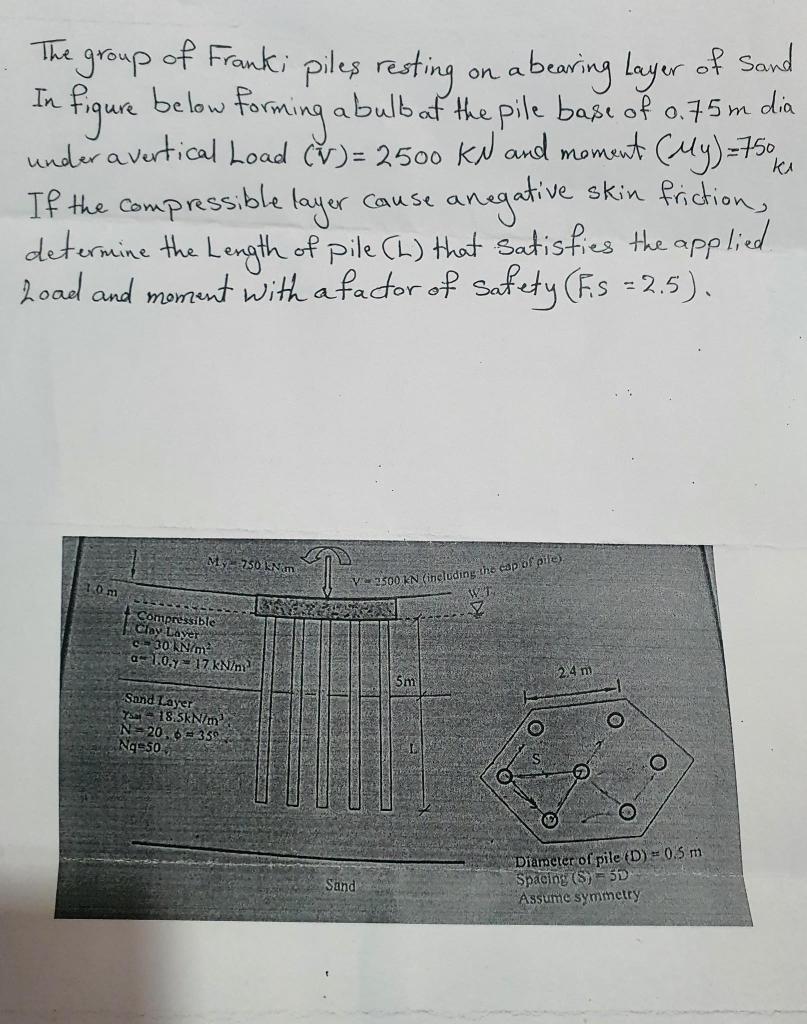 The group of Franki piles resting on a bearing Layer of Sand
In figure below forming a bulb at the pile base of 0.75 m dia
under a vertical Load (V) = 2500 KN and moment (My) = 750
If the compressible layer cause a negative skin friction,
determine the Length of pile (L) that satisfies the applied
Load and moment with a factor of safety (F.s = 2.5).
My = 750 kN.m
V = 2500 kN (including the cap of pile)
1.0 m
W.T.
Compressible
Clay Layer
c = 30 kN/m²
α = 1.0, γ = 17 kN/m³
5m
2.4 m
Sand Layer
= 18.5kN/m³
N = 20, φ = 35°
Nq=50
L
S
Diameter of pile (D) = 0.5 m
Spacing (S) = 5D
Assume symmetry
Sand